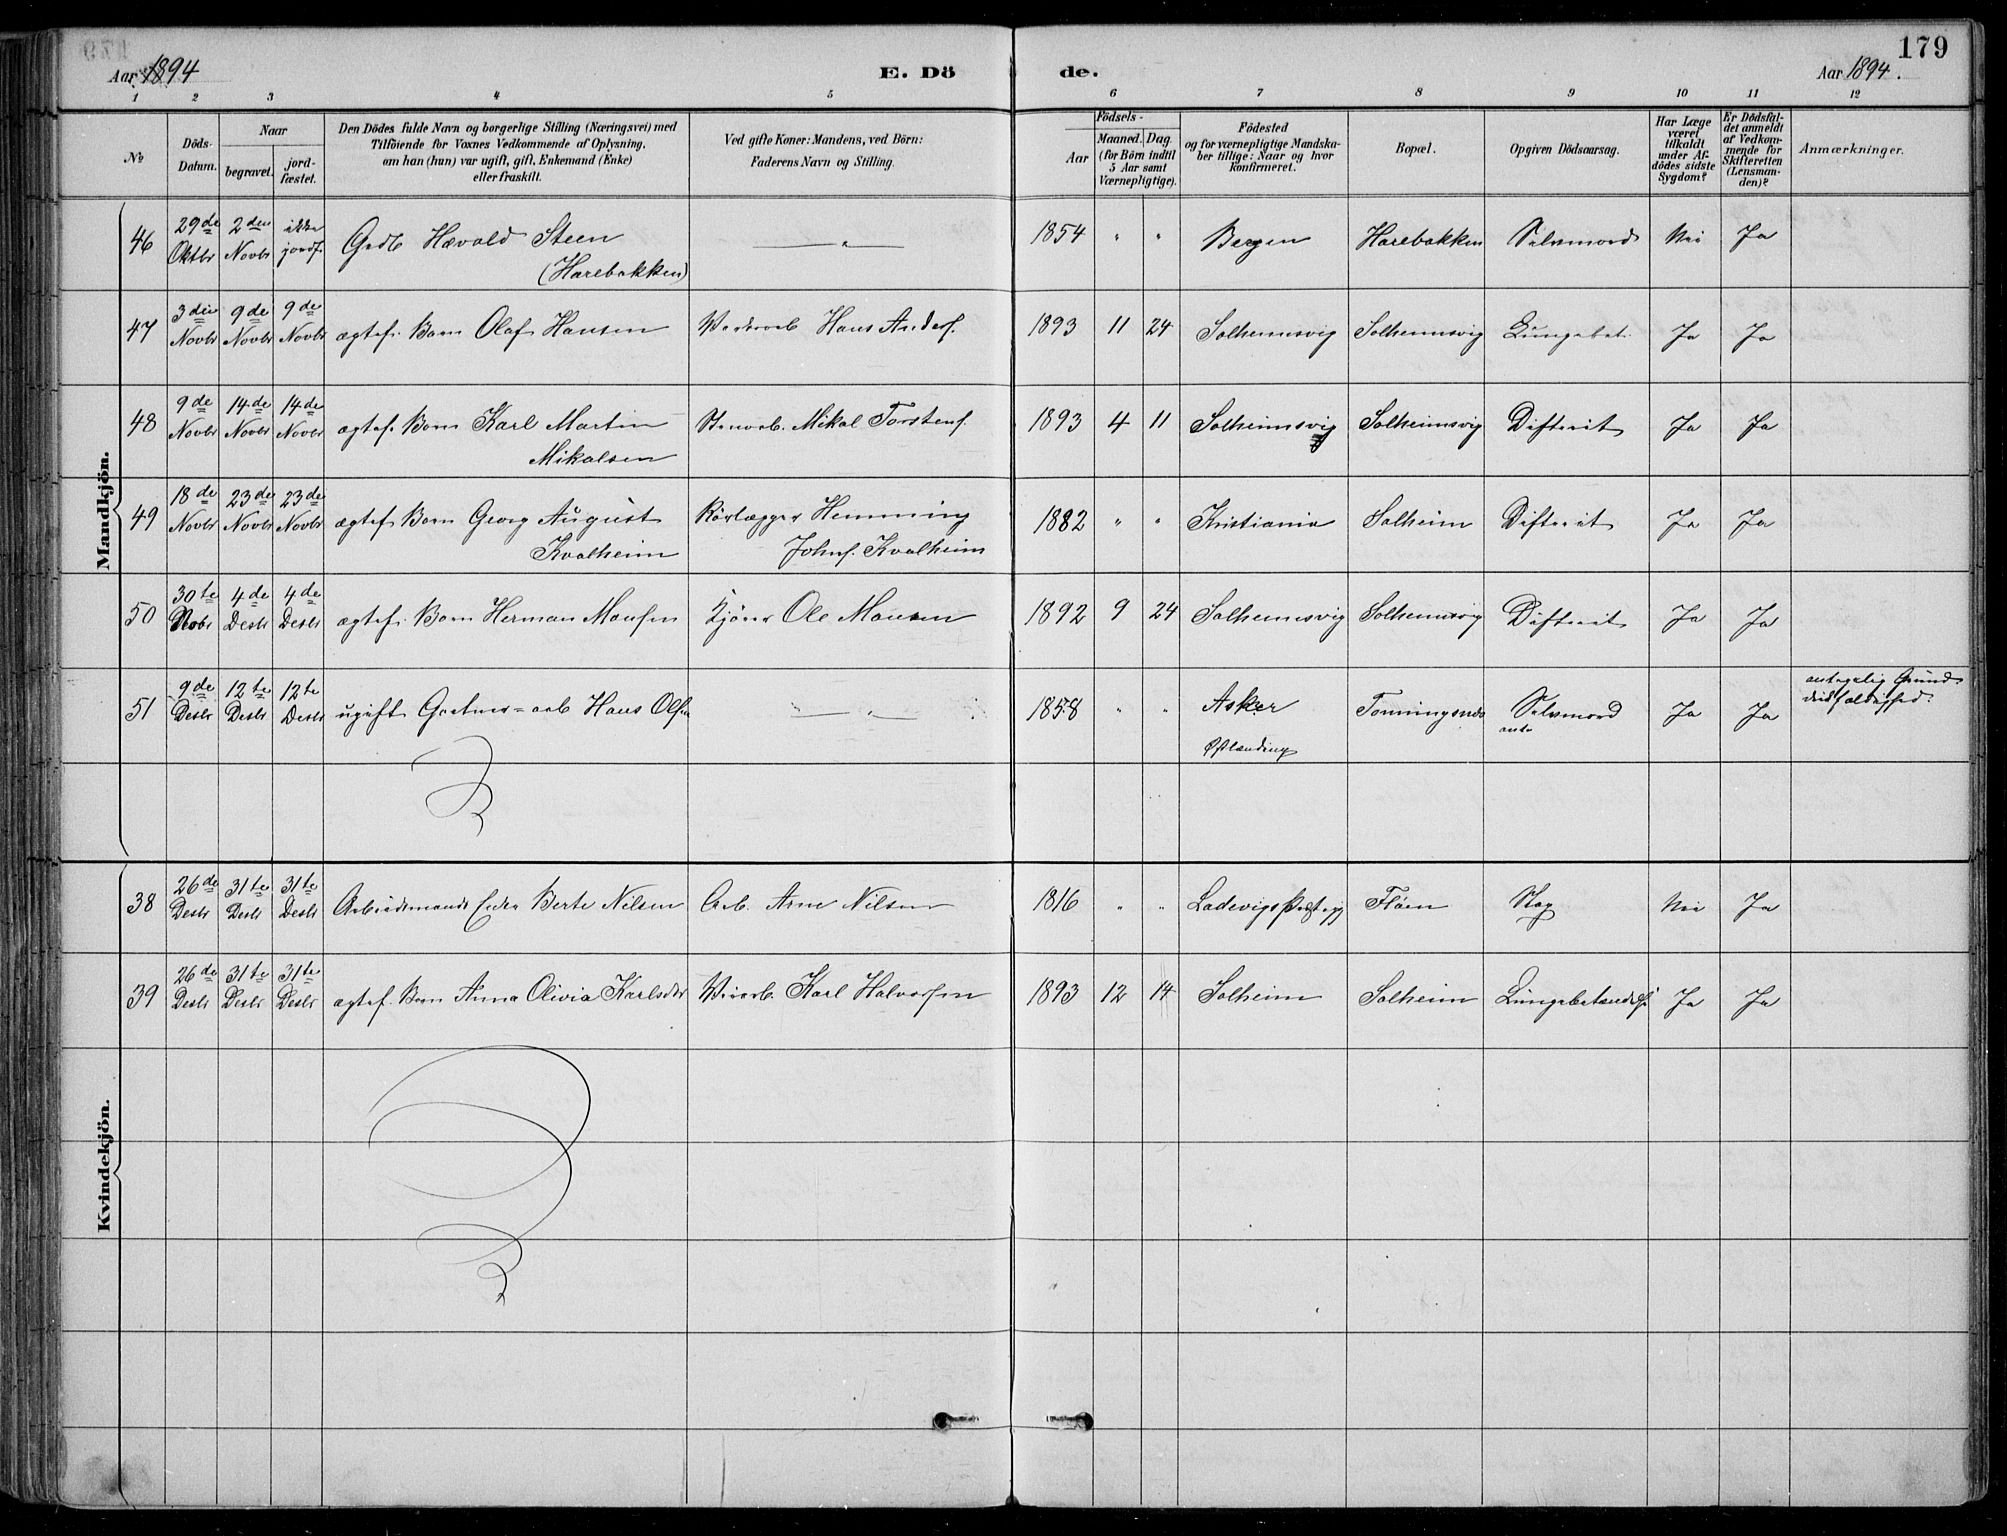 179
Aar 1894
E. Dö
de.
Aar 1894.
1 2 3 4 5 6 7 8 9 10 11 12
№
Döds-
Datum.
Naar
begravet.
jord-
fæstet.
Den Dödes fulde Navn og borgerlige Stilling (Næringsvei) med
Tilföiende for Voxnes Vedkommende af Oplysning,
om han (hun) var ugift, gift, Enkemand (Enke)
eller fraskilt.
Ved gifte Koner: Mandens, ved Börn:
Faderens Navn og Stilling.
Födsels-
Aar
Maaned. Dag.
(for Börn indtil
5 Aar samt
Værnepligtige).
Födested
og for værnepligtige Mandska-
ber tillige: Naar og hvor
konfirmeret.
Bopæl.
Opgiven Dödsaarsag.
Har Læge
været
tilkaldt
under Af-
dödes sidste
Sygdom?
Er Dödsfal-
det anmeldt
af Vedkom-
mende for
Skifteretten
(Lensman-
den)?
Anmærkninger.
Mandkjön.
46 29de Oktbr 2den Novbr ikke jordf. Gerdb Hævald Steen (Harebakken) — " — 1854 " " Bergen Harebakken Selvmord Nei Ja
47 3die Novbr 9de Novbr 9de Novbr ægtef. Barn Olaf Hansen Hans Andersf. 1893 11 24 Solheimsvig Solheimsvig Lungebet. Ja Ja
48 9de Novbr 14de Novbr 14de Novbr ægtef. Barn Karl Martin Mikalsen Stenarb. Mikal Torstensf. 1893 4 11 Solheimsvig Solheimsvig Difterit Ja Ja
49 18de Novbr 23de Novbr 23de Novbr ægtef Barn Georg August Kvalheim Rörlægger Hemming Johnsf. Kvalheim 1882 " " Kristiania Solheim Difterit Ja Ja
50 30te Novbr 4de Desbr 4de Desbr ægtef. Barn Herman Monsen Kjörer Ole Monsen 1892 9 24 Solheimsvig Solheimsvig Difterit Ja Ja
51 9de Desbr 12te Desbr 12te Desbr ugift Gartner-arb Hans Olsen " — " — 1858 " " Asker Østlænding Tonningsnæs Selvmord Ja Ja antagelig Grund
Kvindekjön.
38 26de Desbr 31te Desbr 31te Desbr Arbeidsmands Enke Berte Nilsen Arb. Arne Nilsen 1816 " " Ladevigs Præstegj Flöen Slag Nei Ja
39 26de Desbr 31te Desbr 31te Desbr ægtef. Barn Anna Olivia Karlsdtr Veiarb. Karl Halvorsen 1893 12 14 Solheim Solheim Lungebetændelse Ja Ja